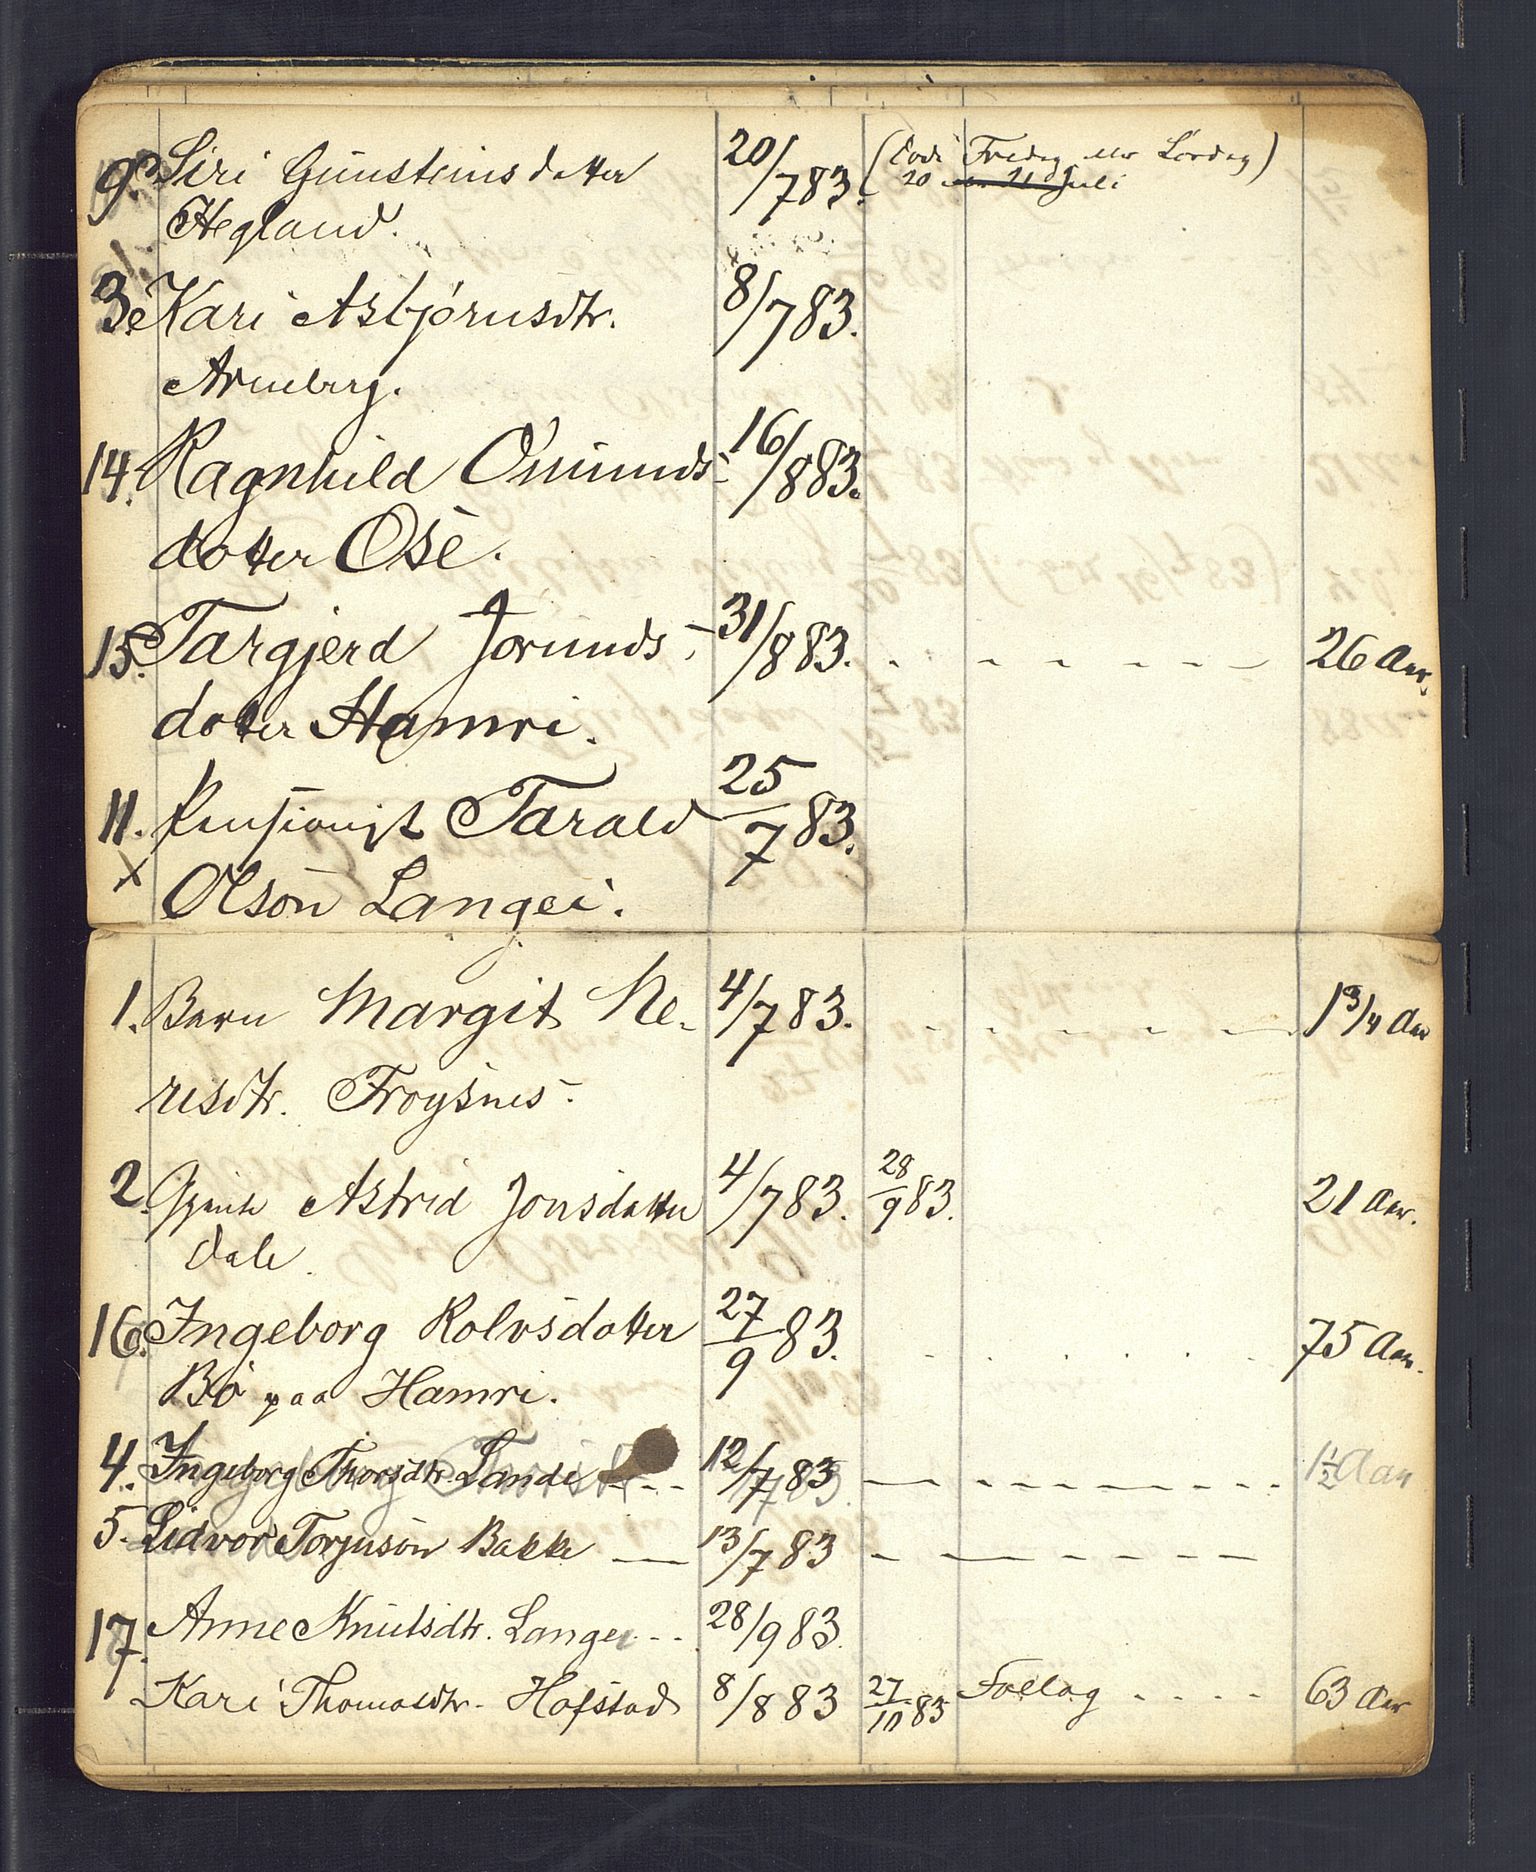 9. Siri Gunsteinsdotter 20/7 83. (Død Fredag eller Lørdag)
Hegland. 20 eller 21 Juli
3. Kari Asbjørnsdtr. 8/7 83.
Arneberg.
14. Ragnhild Omunds- 16/8 83.
dotter Ose.
15. Targjerd Jorunds- 31/8 83. - - - - - - 26 Aar.
dotter Hamri.
11. Pensionist Tarald 25/7 83.
x Olson Langei.
1. Barn Margit Ne- 4/7 83. - - - - - - 1 3/4 Aar
risdtr. Froysnes.
2. Gjente Astrid Jonsdatter 4/7 83. 28/9 83. 21 Aar.
Dale.
16. Ingeborg Rolvsdotter 27/9 83. . . . . . . 75 Aar.
Bø paa Hamri.
4. Ingeborg Thorsdtr. Lande - - - 12/7 83 - - - - - - - - 1 1/2 Aar
5. Lidvor Torjuson Bakke — 13/7 83 - - - - - - -
17. Anne Knutsdtr. Langei - - 28/9 83.
Kari Thomasdtr. Hofstad 8/8 83 27/10 83 Follog - - - - 63 Aar